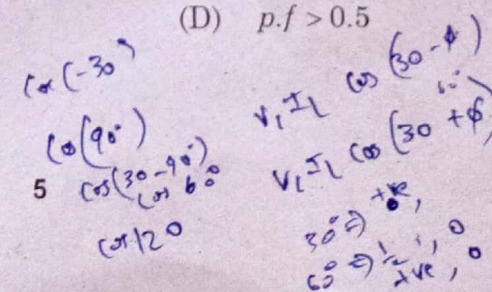 (D) p.f > 0.5
Cos(-30°)
Cos(90°)
5 Cos(30-90°)
Cos 60°
Cos 120
V, IL Cos (30-ϕ)
60°
VL IL Cos (30+ϕ)
30° ⇒ +ve,
60° ⇒ +ve, 0